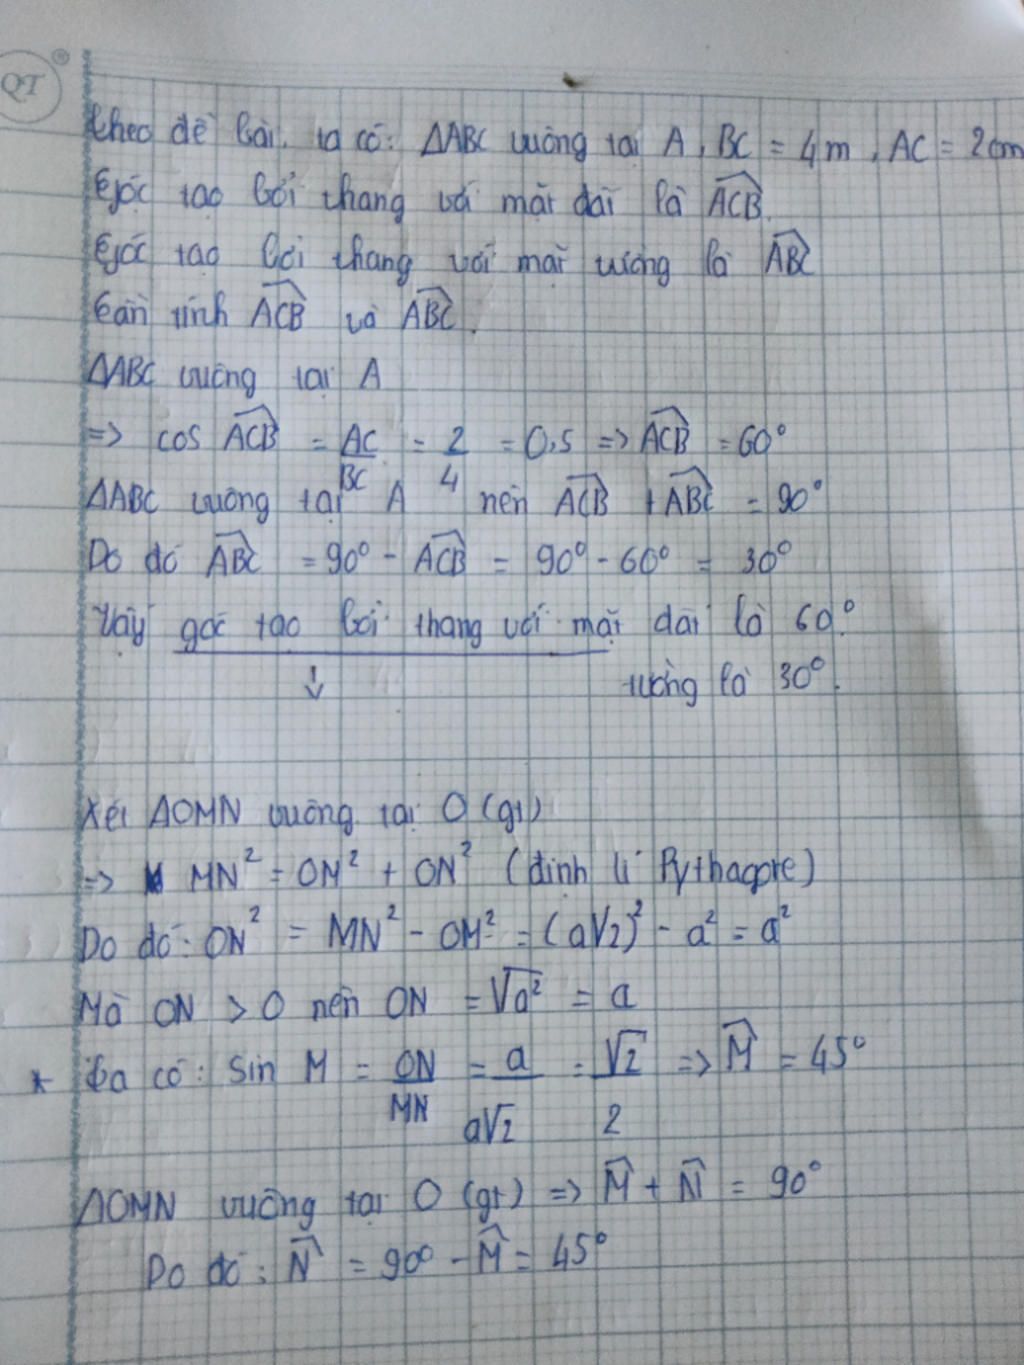 QT ®
Theo đề bài, ta có: ΔABC vuông tại A, BC = 4m, AC = 2cm
Góc tạo bởi thang với mặt đất là ACB.
Góc tạo bởi thang với mặt tường là ABC
Cần tính ACB và ABC.
ΔABC vuông tại A
=> cos ACB = AC/BC = 2/4 = 0,5 => ACB = 60°
ΔABC vuông tại A nên ACB + ABC = 90°
Do đó ABC = 90° - ACB = 90° - 60° = 30°
Vậy góc tạo bởi thang với mặt đất là 60°.
↓ tường là 30°.
Xét ΔOMN vuông tại O (gt)
=> MN² = OM² + ON² (định lí Pythagore)
Do đó: ON² = MN² - OM² = (a√2)² - a² = a²
Mà ON > 0 nên ON = √a² = a
* Ta có: Sin M = ON/MN = a/a√2 = √2/2 => M = 45°
ΔOMN vuông tại O (gt) => M + N = 90°
Do đó: N = 90° - M = 45°